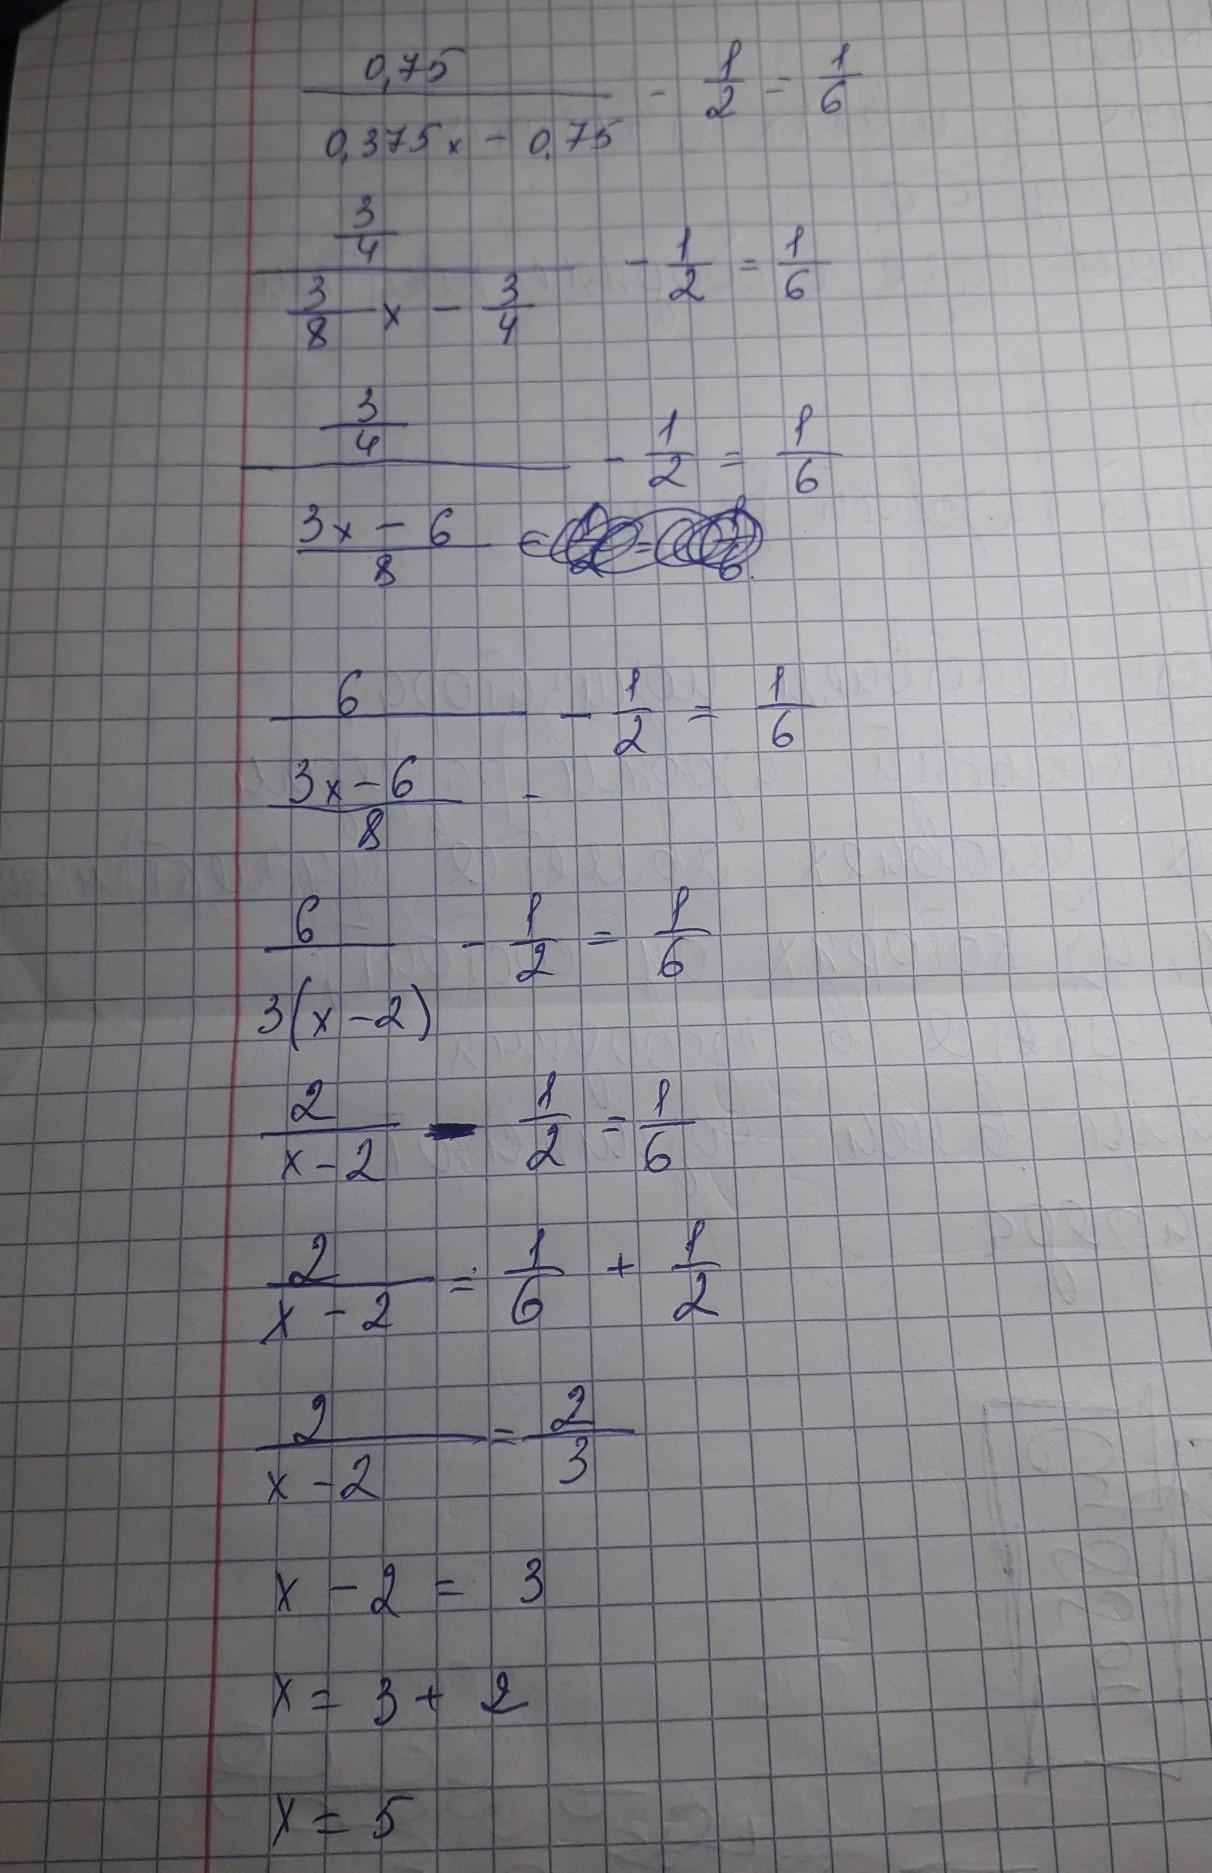 0,75 / 0,375x - 0.75 - 1/2 = 1/6
3/4 / 3/8 x - 3/4 - 1/2 = 1/6
3/4 / 3x - 6/8 - 1/2 = 1/6
6 / 3x - 6/8 - 1/2 = 1/6
6 / 3(x - 2) - 1/2 = 1/6
2 / x - 2 - 1/2 = 1/6
2 / x - 2 = 1/6 + 1/2
2 / x - 2 = 2/3
x - 2 = 3
x = 3 + 2
x = 5